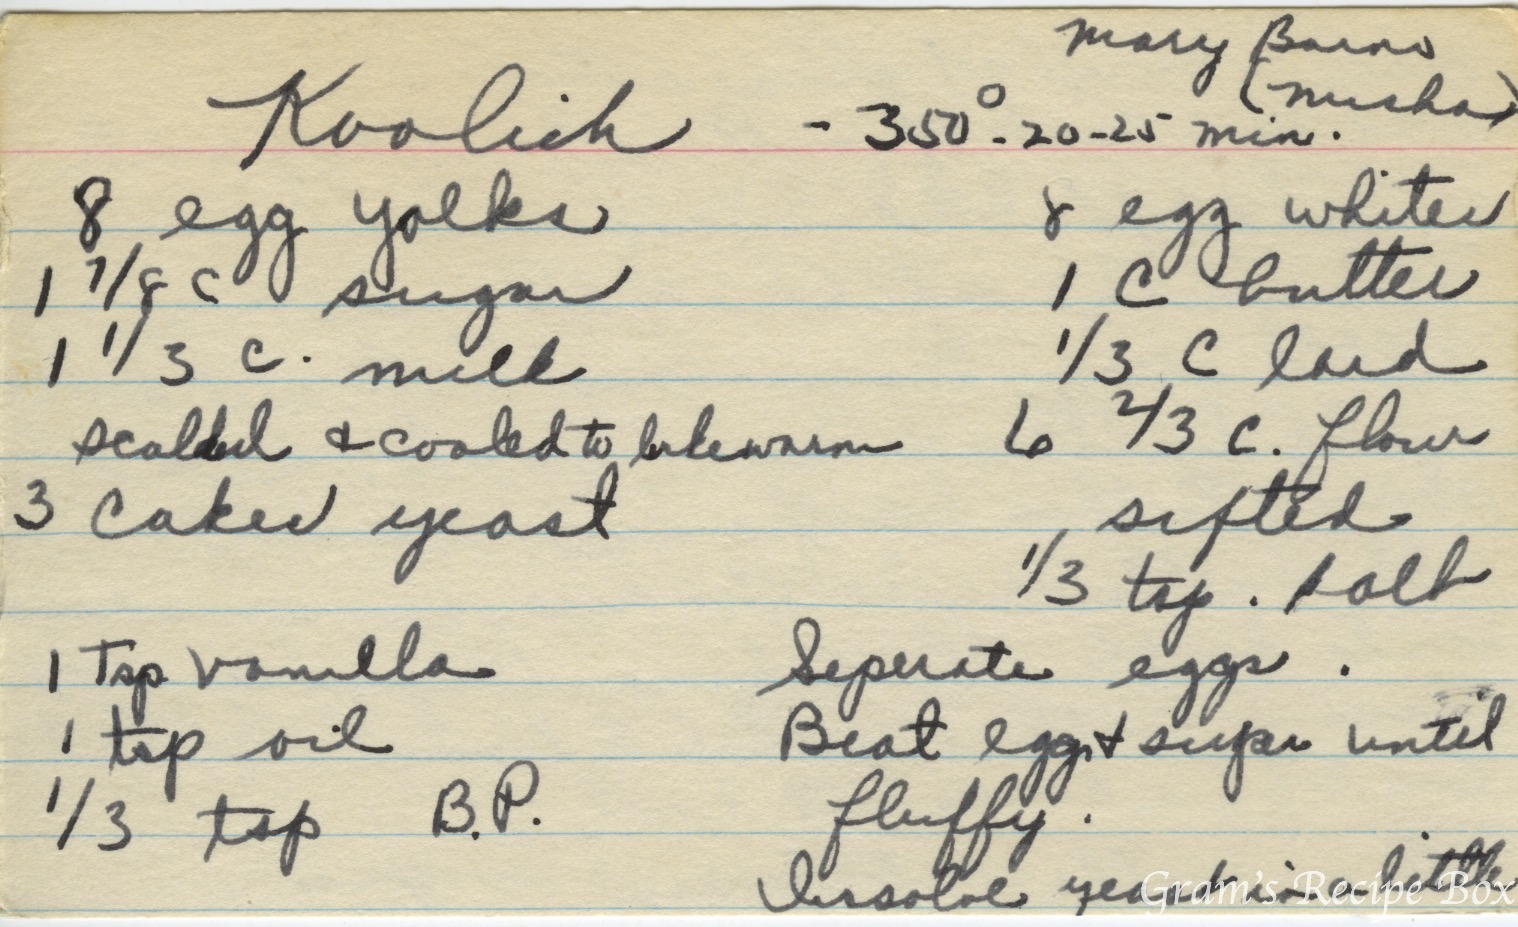 Mary Barns
(Misha)
Koolich - 350° - 20-25 min.
8 egg yolks
8 egg whites
1 7/8 c sugar
1 C butter
1 1/3 c. milk
1/3 C lard
scalded & cooled to lukewarm
6 2/3 c. flour
3 cakes yeast
sifted
1/3 tsp. salt
1 Tsp vanilla
Seperate eggs.
1 tsp oil
Beat egg & sugar until
1/3 tsp B.P.
fluffy.
yeast in a little
Gram's Recipe Box